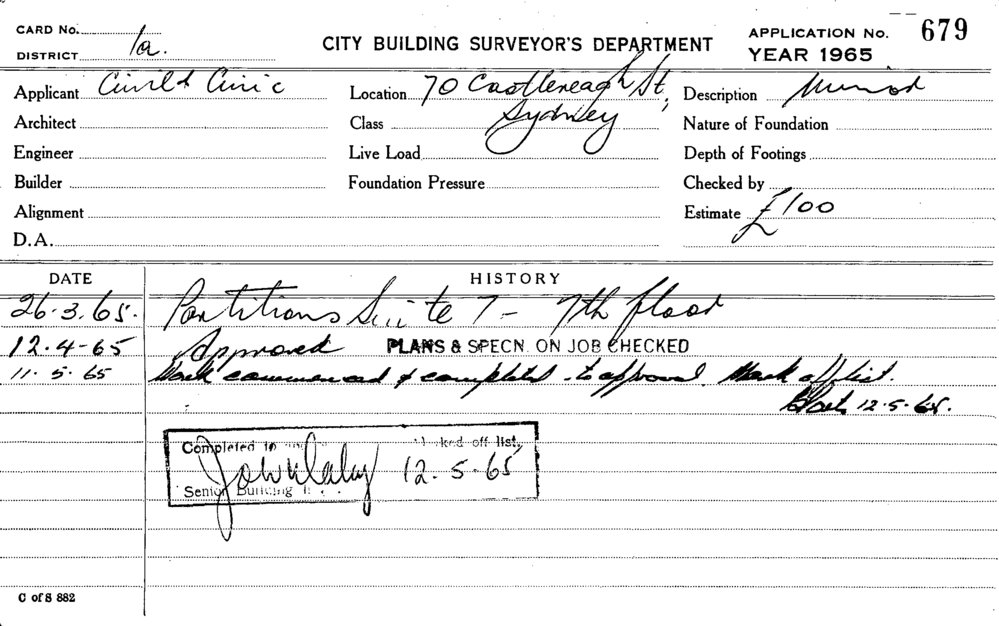 CARD No. APPLICATION No. 679
DISTRICT 1a. CITY BUILDING SURVEYOR'S DEPARTMENT YEAR 1965
Applicant Civil & Civic Location 70 Castlereagh St, Description Minor
Architect Class Sydney Nature of Foundation
Engineer Live Load Depth of Footings
Builder Foundation Pressure Checked by
Alignment Estimate £100
D.A.
DATE HISTORY
26.3.65. Partitions Suite 7 - 7th floor
12.4-65 Approved PLANS & SPECN. ON JOB CHECKED
11.5.65 Work commenced & completed to approval. Mark off list.
12.5.65.
Completed to off list,
12.5.65
Senior Building
C of S 882